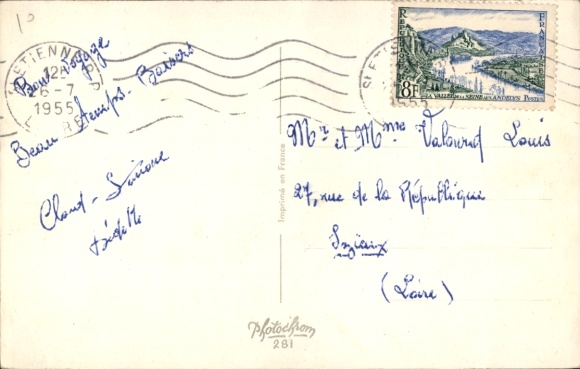 10
ST ETIENNE
12H
6-7
1955
Bons Voyage
Beau temps - Baisers
Claud - Simone
RÉPUBLIQUE FRANÇAISE
8F
LA VALLÉE DE LA SEINE AUX ANDELYS POSTES
ST ETIENNE
1955
Mr et Mme Valound Louis
27, rue de la République
Izieux
(Loire)
Imprimé en France
Photochrom
281